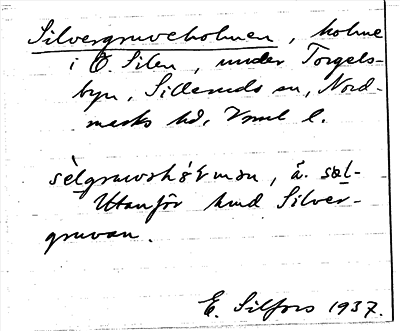 Silvergruveholmen, holme
i Ö. Silen, under Torgels-
byn, Silleruds sn, Nord-
marks hd, Vrml l.
sèlgruvshòlmən, ä. sæl-
Utanför hmd Silver-
gruvan.
E. Silfors 1937.